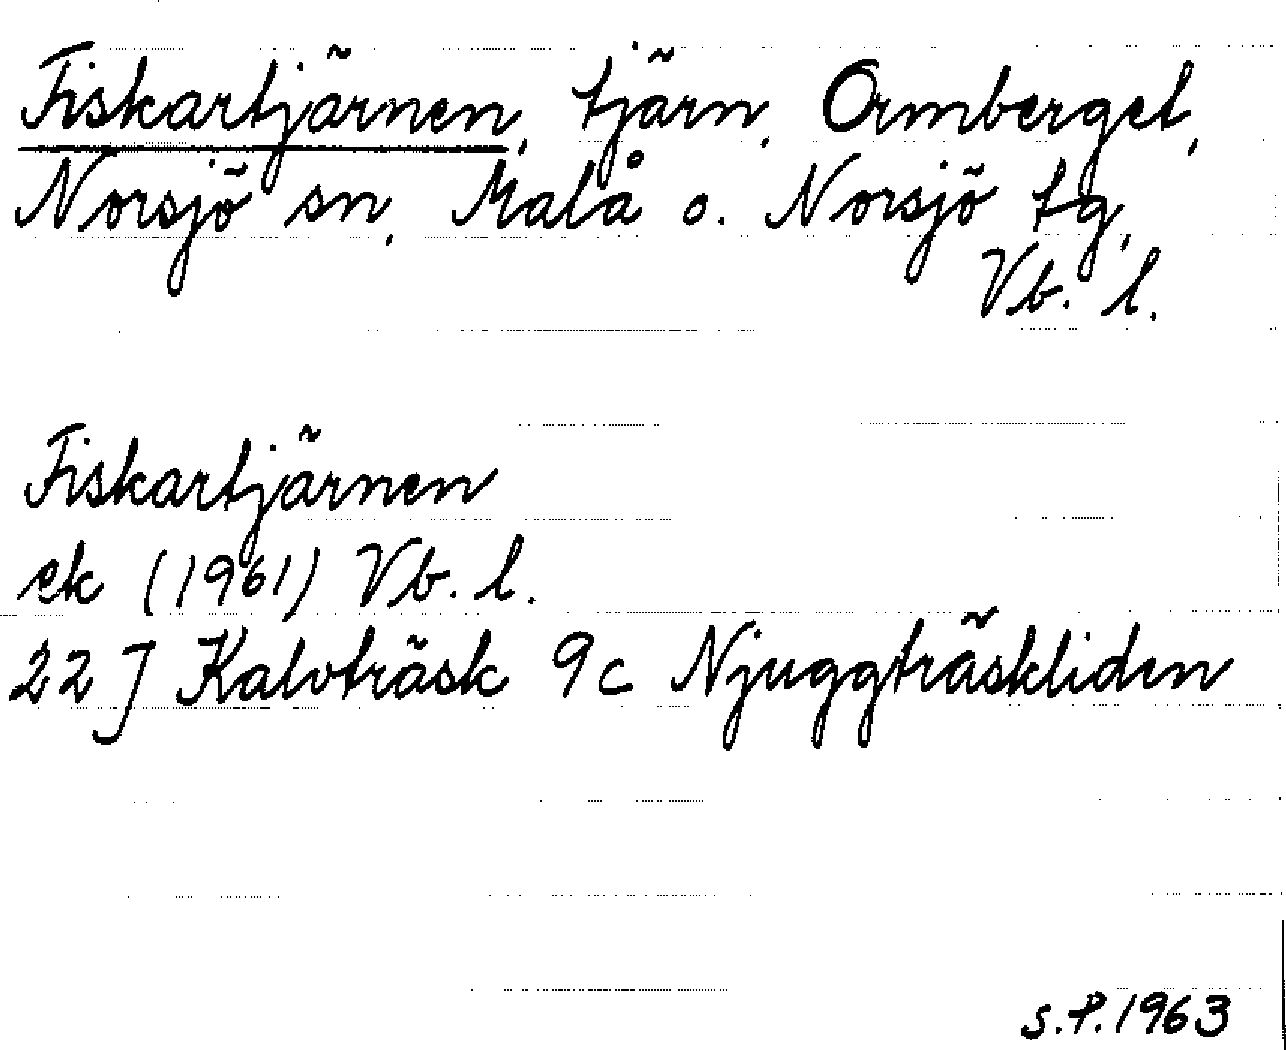 Fiskartjärnen, tjärn, Ormberget,
Norsjö sn, Malå o. Norsjö tg,
Vb. l.
Fiskartjärnen
ek (1961) Vb. l.
22 J Kalvträsk 9c Njuggträskliden
S.P. 1963